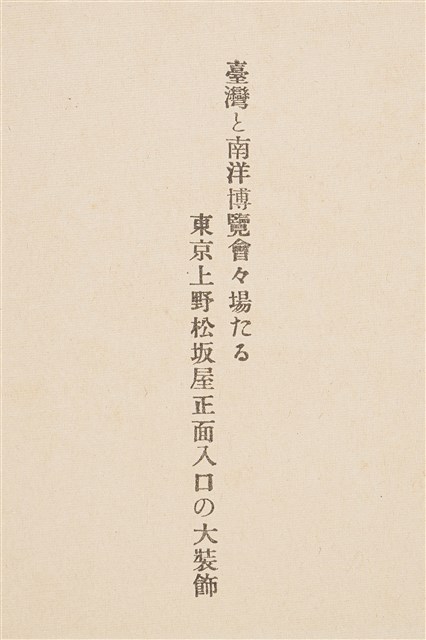 臺灣と南洋博覽會々場たる
東京上野松坂屋正面入口の大裝飾